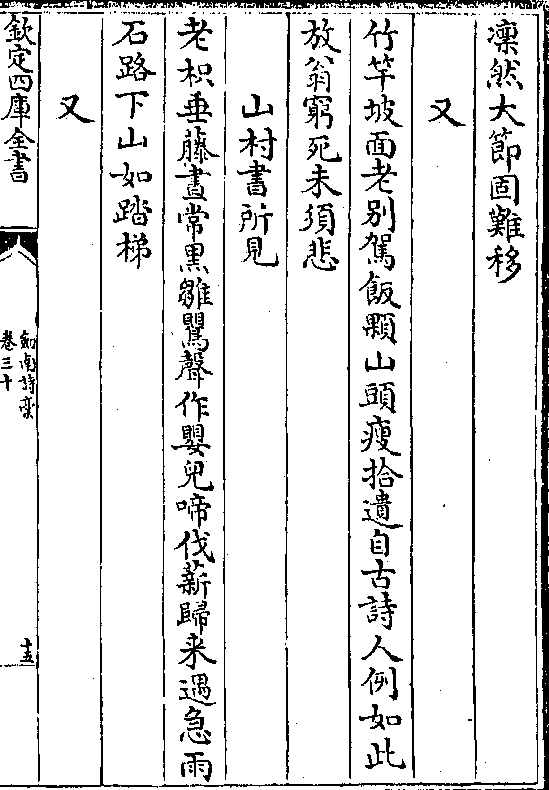 凜然大節固難移
又
竹竿坡面老別駕飯顆山頭瘦拾遺自古詩人例如此
放翁窮死未須悲
山村書所見
老枳垂藤晝常黒雛鷪聲作嬰兒啼伐薪歸来遇急雨
石路下山如踏梯
又
欽定四庫全書
劔南詩藁
卷三十
十五